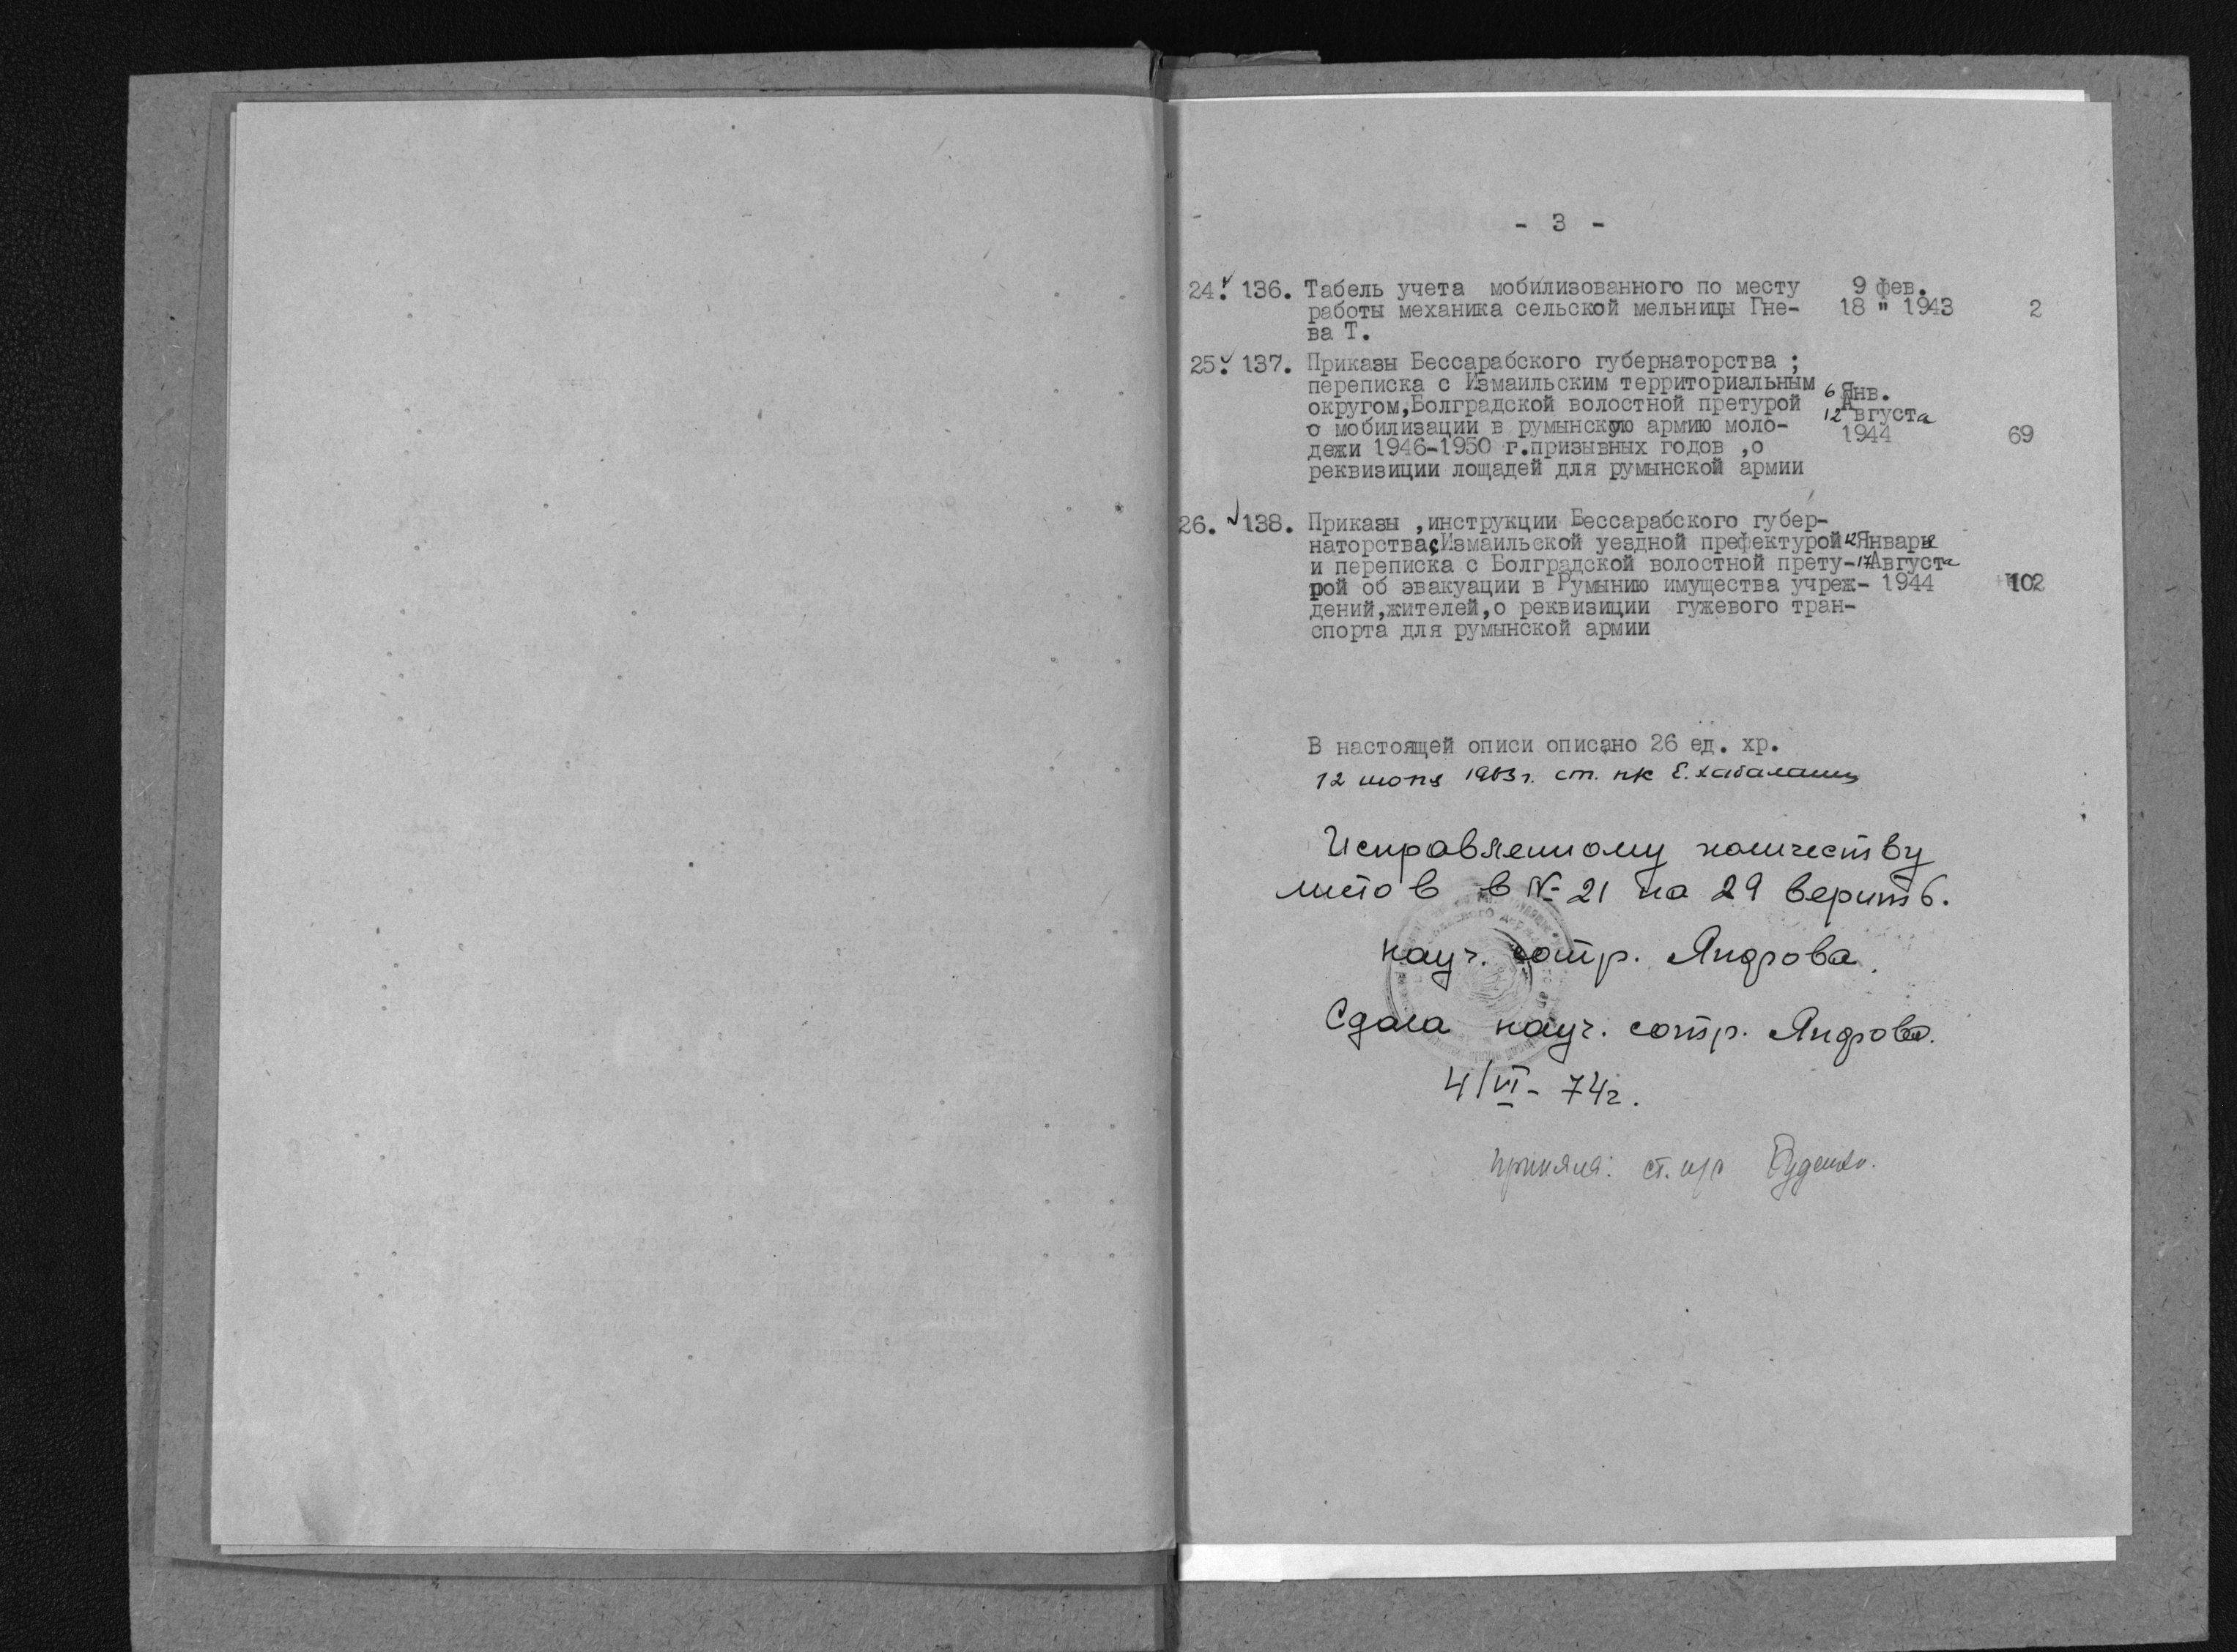 - 3 -
24. 136. Табель учета мобилизованного по месту 9 фев.
работы механика сельской мельницы Гне- 18 " 1943 2
ва Т.
25. 137. Приказы Бессарабского губернаторства ;
переписка с Измаильским территориальным 6 Янв.
округом,Болградской волостной претурой 12 Августа
о мобилизации в румынскую армию моло- 1944 69
дежи 1946-1950 г.призывных годов ,о
реквизиции лощадей для румынской армии
26. 138. Приказы ,инструкции Бессарабского губер-
наторства,Измаильской уездной префектурой 12 Январь
и переписка с Болградской волостной прету- 17 Августа
рой об эвакуации в Румынию имущества учреж- 1944 102
дений,жителей,о реквизиции гужевого тран-
спорта для румынской армии
В настоящей описи описано 26 ед. хр.
12 июня 1963г. ст. нк Е.
Исправленному количеству
листов в № 21 на 29 верить.
науч. сотр. Яндрова.
Сдала науч. сотр. Яндрова.
4/VI- 74г.
приняла: ст.